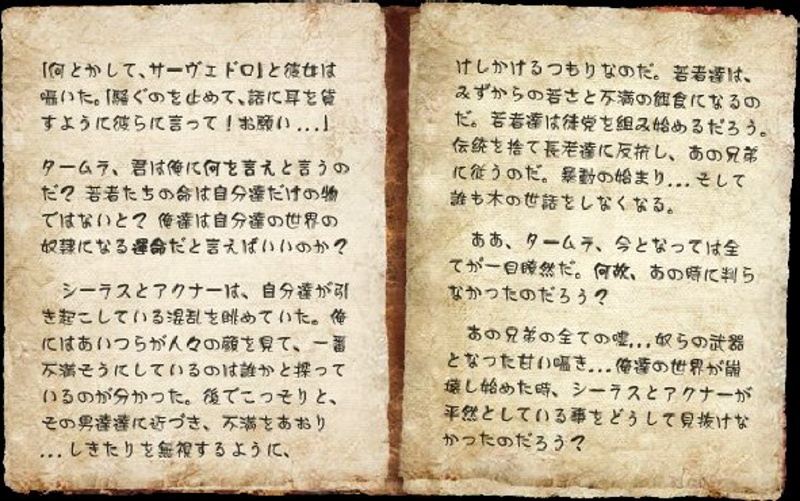 「何とかして、サーヴェドロ」と彼女は
囁いた。「騒ぐのを止めて、話に耳を貸
すように彼らに言って！お願い...」
タームラ、君は俺に何を言えと言うの
だ？ 若者たちの命は自分達だけの物
ではないと？ 俺達は自分達の世界の
奴隷になる運命だと言えばいいのか？
シーラスとアクナーは、自分達が引
き起こしている混乱を眺めていた。俺
にはあいつらが人々の顔を見て、一番
不満そうにしているのは誰かと探って
いるのが分かった。後でこっそりと、
その男達達に近づき、不満をあおり
...しきたりを無視するように、
けしかけるつもりなのだ。若者達は、
みずからの若さと不満の餌食になるの
だ。若者達は徒党を組み始めるだろう。
伝統を捨て長老達に反抗し、あの兄弟
に従うのだ。暴動の始まり...そして
誰も木の世話をしなくなる。
ああ、タームラ、今となっては全
てが一目瞭然だ。何故、あの時に判ら
なかったのだろう？
あの兄弟の全ての嘘...奴らの武器
となった甘い囁き...俺達の世界が崩
壊し始めた時、シーラスとアクナーが
平然としている事をどうして見抜けな
かったのだろう？